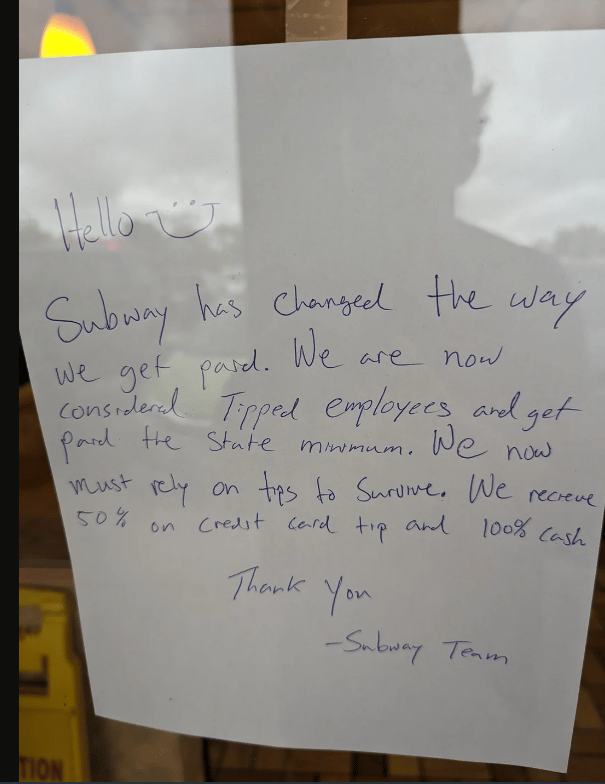 Hello
Subway has changed the way
we get paid. We are now
considered Tipped employees and get
paid the State minimum. We now
must rely on tips to Survive. We recieve
50% on credit card tip and 100% cash
Thank You
-Subway Team
TION